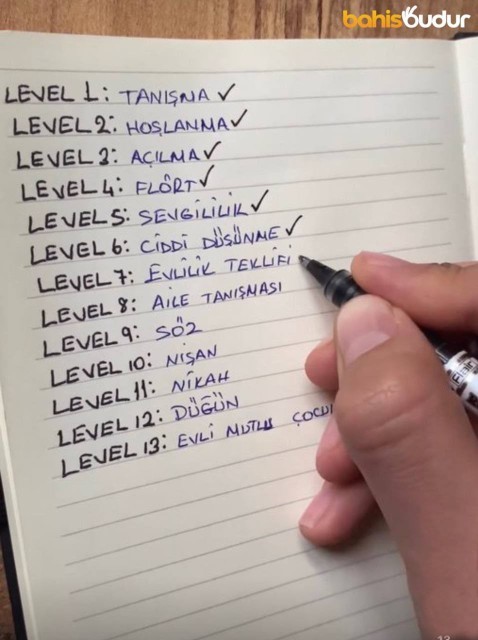 bahisbudur
LEVEL 1: TANIŞMA ✓
LEVEL 2: HOŞLANMA ✓
LEVEL 3: AÇILMA ✓
LEVEL 4: FLÖRT ✓
LEVEL 5: SEVGİLİLİK ✓
LEVEL 6: CİDDİ DÜŞÜNME ✓
LEVEL 7: EVLİLİK TEKLİFİ
LEVEL 8: AİLE TANIŞMASI
LEVEL 9: SÖZ
LEVEL 10: NİŞAN
LEVEL 11: NİKAH
LEVEL 12: DÜĞÜN
LEVEL 13: EVLİ MUTLU